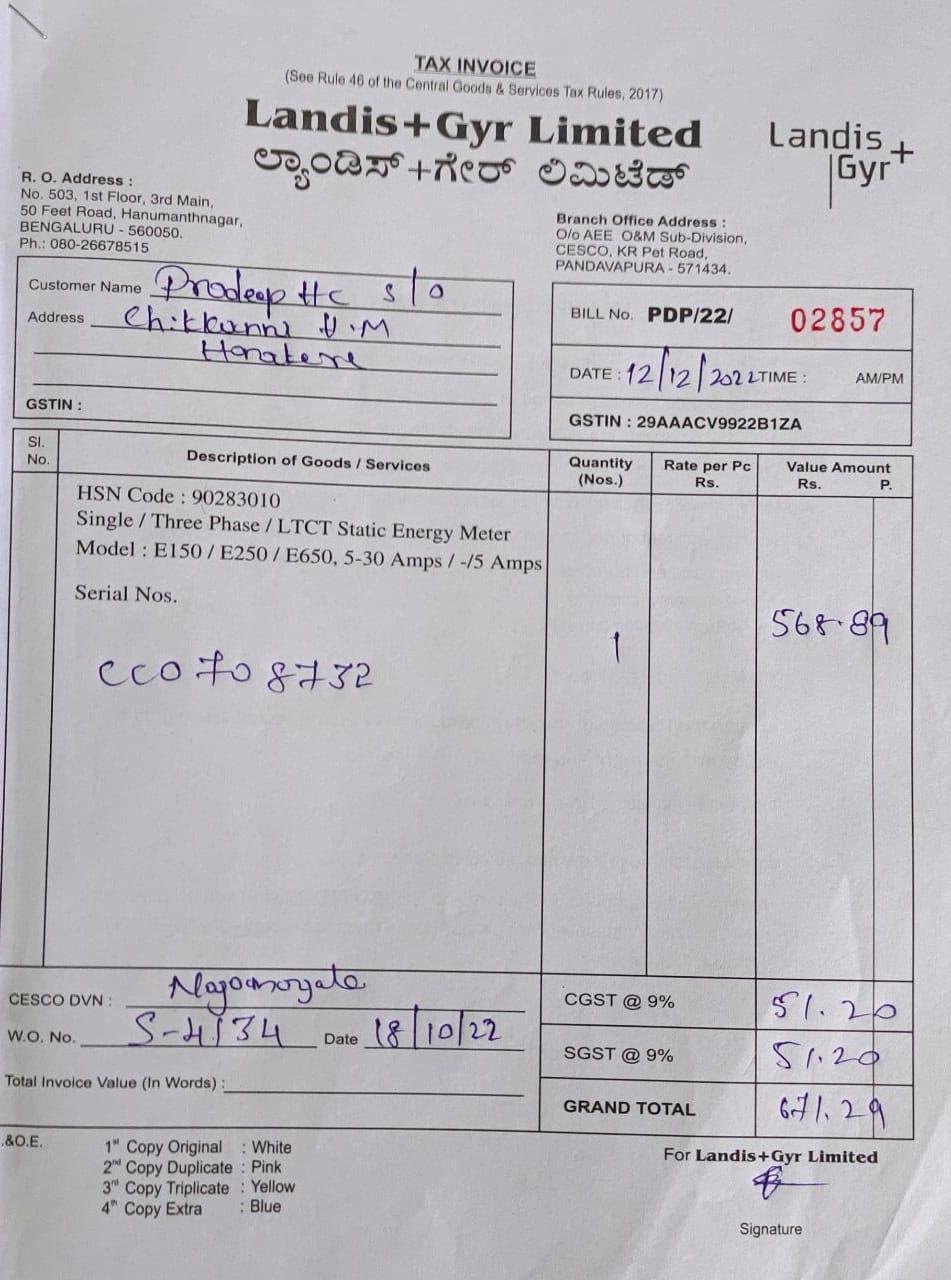 TAX INVOICE
(See Rule 46 of the Central Goods & Services Tax Rules, 2017)
Landis+Gyr Limited
ಲ್ಯಾಂಡಿಸ್+ಗೇರ್ ಲಿಮಿಟೆಡ್
Landis+
Gyr
R. O. Address :
No. 503, 1st Floor, 3rd Main,
50 Feet Road, Hanumanthnagar,
BENGALURU - 560050.
Ph.: 080-26678515
Branch Office Address :
O/o AEE O&M Sub-Division,
CESCO, KR Pet Road,
PANDAVAPURA - 571434.
Customer Name Pradeep HC s/o
Address H.M
GSTIN :
BILL No. PDP/22/ 02857
DATE : 12/12/2022 TIME : AM/PM
GSTIN : 29AAACV9922B1ZA
Sl. No. Description of Goods / Services Quantity (Nos.) Rate per Pc Rs. Value Amount Rs. P.
HSN Code : 90283010
Single / Three Phase / LTCT Static Energy Meter
Model : E150 / E250 / E650, 5-30 Amps / -/5 Amps
Serial Nos.
1 568.89
CC0708732
CESCO DVN :
W.O. No. S-4134 Date 18/10/22
Total Invoice Value (In Words) :
CGST @ 9% 51.20
SGST @ 9% 51.20
GRAND TOTAL 671.29
.&O.E.
1st Copy Original : White
2nd Copy Duplicate : Pink
3rd Copy Triplicate : Yellow
4th Copy Extra : Blue
For Landis+Gyr Limited
Signature